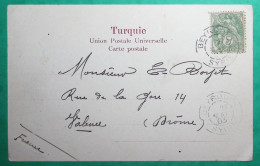 Turquie
Union Postale Universelle
Carte postale
Monsieur E.
Rue de la Gare 14
Valence (Drôme)
France